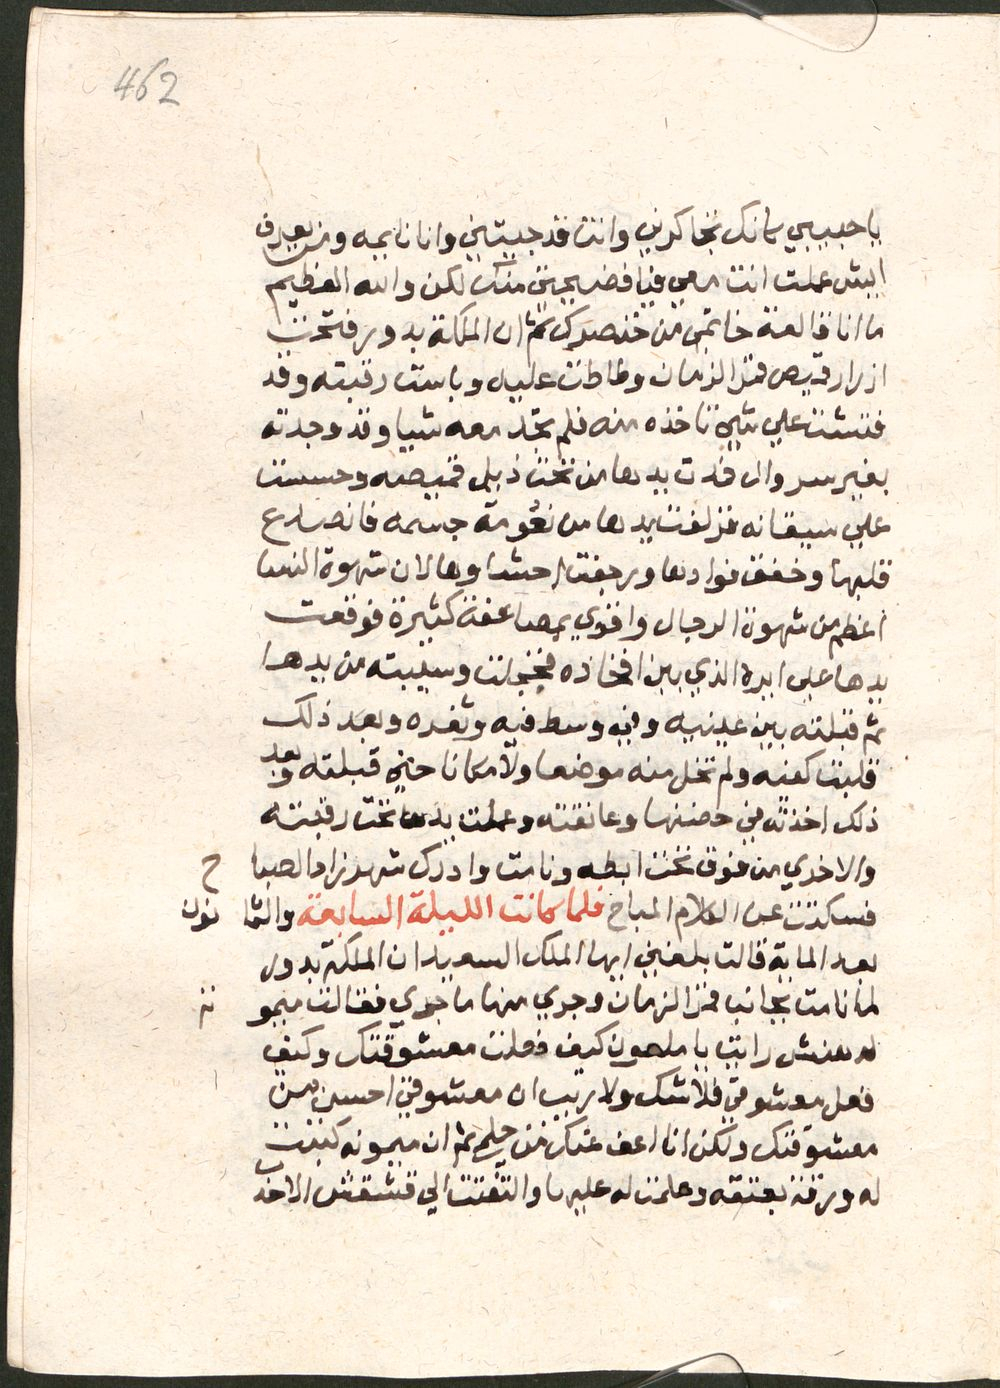 462
يا حبيبي كانك تحاكرني وانت قد جيتني وانا نايمه ومن يعرف
ايش عملت انت معي فيا فضيحتي منك لكن والله العظيم
ما انا قالعة خاتمي من خنصرك ثم ان الملكة بدور فتحت
ازرار قميص قمر الزمان وطاطت عليه وباست رقبته وقد
فتشت علي شي تاخذه منه فلم تجد معه شيا وقد وجدته
بغير سروال فمدت يدها من تحت ذيل قميصه وحسست
علي سيقانه فزلقت يدها من نعومة جسمه فانصدع
قلبها وخفق فوادها ورجفت احشاوها لان شهوة النسا
اعظم من شهوة الرجال واقوي بمضاعفة كثيرة فوقعت
يدها علي ايره الذي بين افخاذه فخجلت وسيبته من يدها
ثم قبلته بين عينيه وفي وسط فيه وثغره وبعد ذلك
قلبت كفيه ولم تخل منه موضعا ولا مكانا حتي قبلته وبعد
ذلك اخذته في حضنها وعانقته وعملت يدها تحت رقبته
والاخري من فوق تحت ابطه ونامت وادرك شهرزاد الصباح
فسكتت عن الكلام المباح فلما كانت الليلة السابعة والثمانون
بعد الماية قالت بلغني ايها الملك السعيد ان الملكة بدور
لما نامت بجانب قمر الزمان وجري منها ما جري فقالت ميمونة
لدهنش رايت يا ملعون كيف فعلت معشوقتك وكيف
فعل معشوقي فلا شك ولا ريب ان معشوقي احسن من
معشوقتك ولكن انا اعف عنك من حلم ثم ان ميمونه كتبت
له ورقة بعتقه وعلمت له عليها والتفتت الي قشقش الاخر